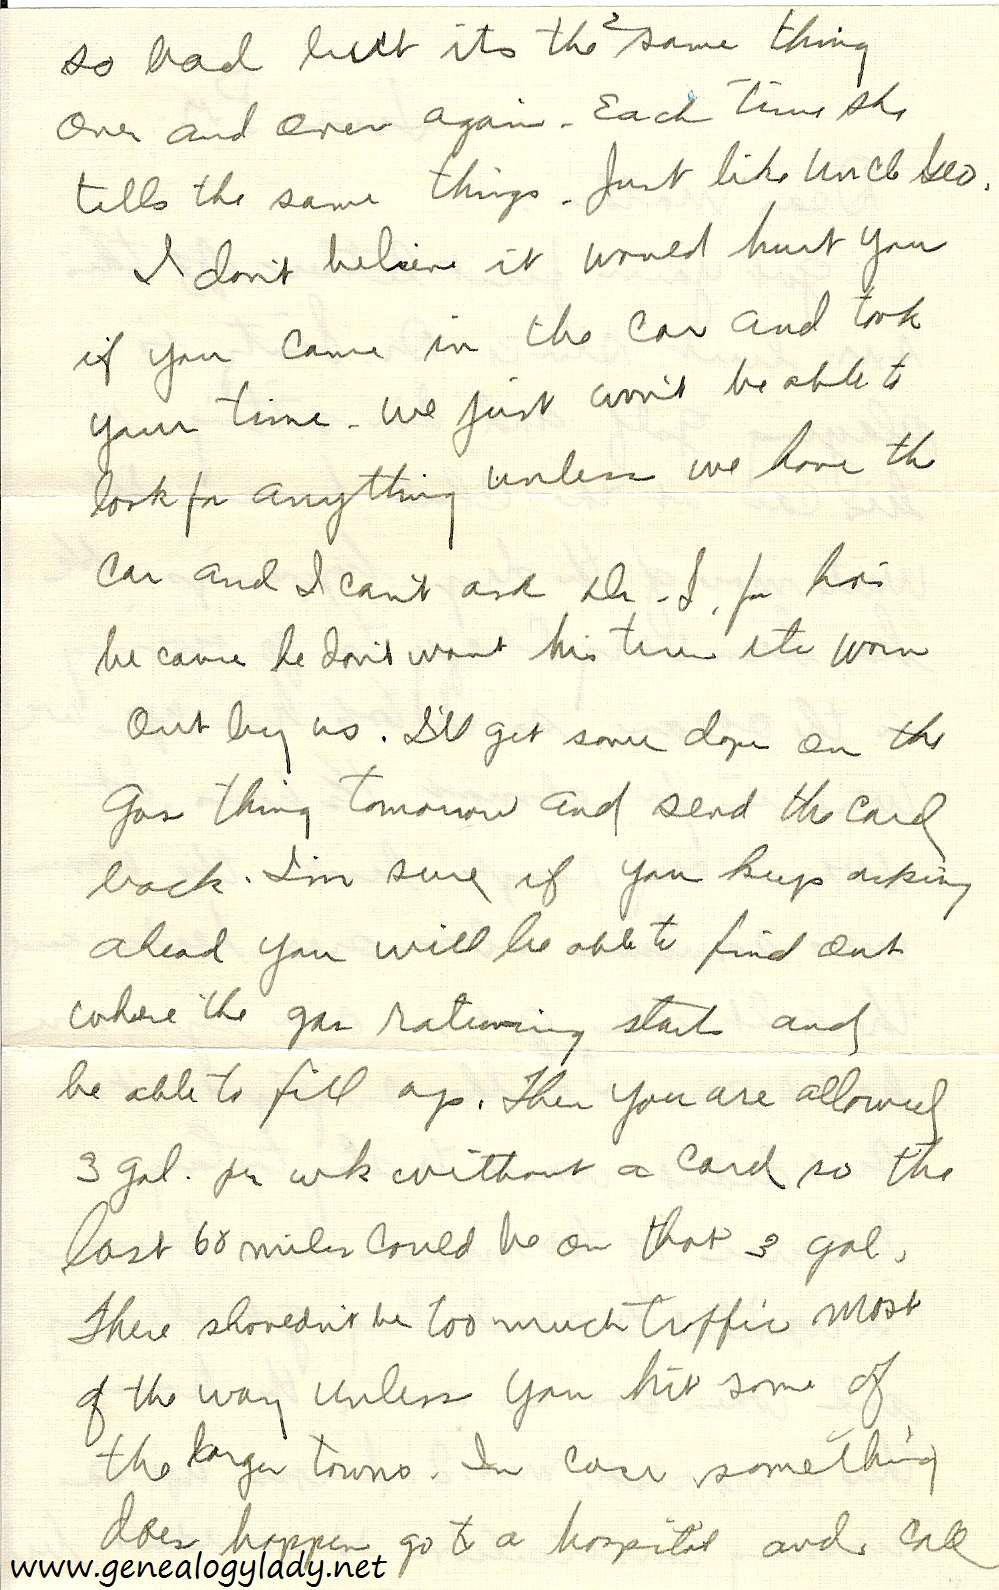 so bad but its the same thing
over and over again. Each time she
tells the same things. Just like Uncle Geo.
I don't believe it would hurt you
if you came in the car and took
your time. We just won't be able to
look for anything unless we have the
car and I can't ask Dr. I. for his
because he don't want his tires etc worn
out by us. I'll get some dope on the
gas thing tomorrow and send the card
back. I'm sure if you keep asking
ahead you will be able to find out
where the gas rationing starts and
be able to fill up. Then you are allowed
3 gal. per wk without a card so the
last 60 miles could be on that 3 gal.
There shouldn't be too much traffic most
of the way unless you hit some of
the larger towns. In case something
does happen go to a hospital and call
www.genealogylady.net